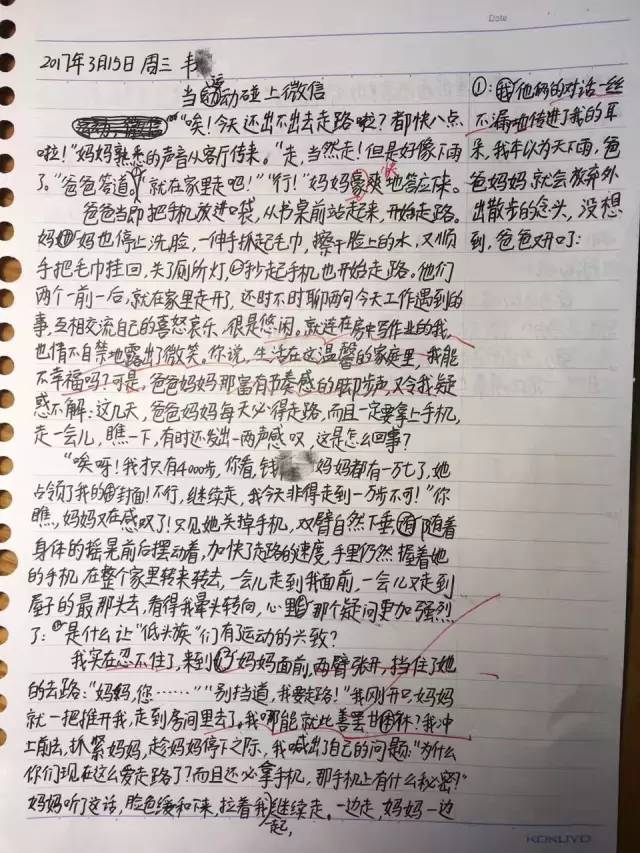 Date
2017年3月15日 周三 韦
当运动碰上微信
"唉！今天还出不出去走路啦？都快八点
啦！"妈妈熟悉的声音从客厅传来。"走，当然走！但是好像下雨
了。"爸爸答道，"就在家里走吧！""行！"妈妈爽快地答应下来。
爸爸当即把手机放进口袋，从书桌前站起来，开始走路。
妈妈也停止洗脸，一伸手抓起毛巾，擦干脸上的水，又顺
手把毛巾挂回，关了厕所灯，抄起手机也开始走路。他们
两个一前一后，就在家里走开了，还时不时聊两句今天工作遇到的
事，互相交流自己的喜怒哀乐，很是悠闲。就连在房中写作业的我，
也情不自禁地露出了微笑。你说，生活在这温馨的家庭里，我能
不幸福吗？可是，爸爸妈妈那富有节奏感的脚步声，又令我疑
惑不解：这几天，爸爸妈妈每天必得走路，而且一定要拿上手机，
走一会儿，瞧一下，有时还发出一两声感叹，这是怎么回事？
"唉呀！我才只有4000步，你看，钱妈妈都有一万七了，她
占领了我的封面！不行，继续走，我今天非得走到一万步不可！"你
瞧，妈妈又在感叹了！只见她关掉手机，双臂自然下垂，随着
身体的摇晃前后摆动着，加快了走路的速度，手里仍然握着她
的手机，在整个家里转来转去，一会儿走到我面前，一会儿又走到
屋子的最那头去，看得我晕头转向，心里那个疑问更加强烈
了：是什么让"低头族"们有了运动的兴致？
我实在忍不住了，来到妈妈面前，两臂张开，挡住了她
的去路："妈妈，您……""别挡道，我要走路！"我刚开口，妈妈
就一把推开我，走到房间里去了。我哪能就此善罢甘休？我冲
上前去，抓紧妈妈，趁妈妈停下之际，我喊出了自己的问题："为什么
你们现在这么爱走路了？而且还必拿手机，那手机上有什么秘密？"
妈妈听了这话，脸色缓和下来，拉着我一起，继续走。一边走，妈妈一边
①：他俩的对话一丝
不漏地传进了我的耳
朵，我本以为天下雨，爸
爸妈妈，就会放弃外
出散步的念头，没想
到，爸爸又开口了：
KOKUYO